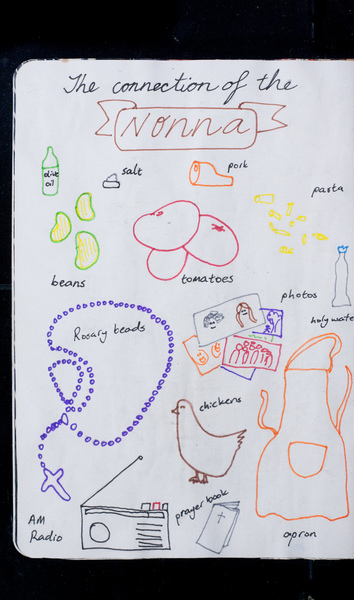 The connection of the
Nonna
olive
oil
salt
pork
pasta
beans
tomatoes
photos
holy wate
Rosary beads
chickens
prayer book
AM
Radio
apron